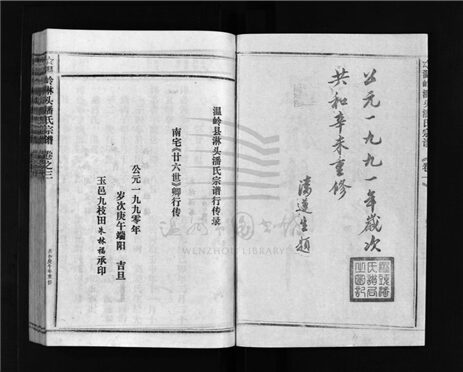 公元一九九一年歲次
共和辛未重修
潘道生題
温岭淋头潘氏宗谱
温岭县淋头潘氏宗谱行传录
南宅《廿六世》卿行传
公元一九九零年
岁次庚午端阳 吉旦
玉邑九枝田朱林福承印
岭淋头潘氏宗谱 卷之三
WENZHOU LIBRARY